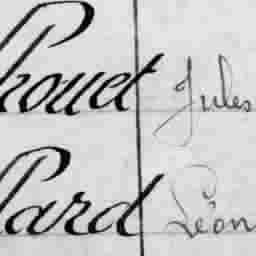 houet Jules
lard Léon